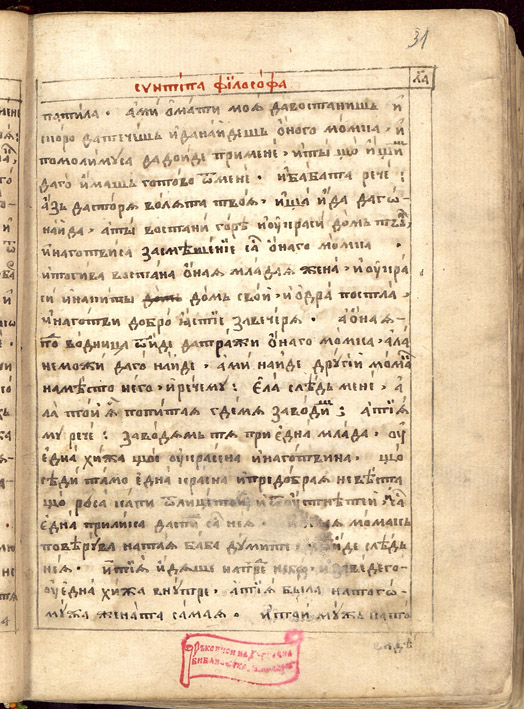 31
СУНТІПА ФІЛОСОФА
ЛА
патила . ами ѡмати моѧ давостанишъ и
скоро даптечешъ иданайдешъ ѻного момка , и
помолимуса дадойде примене , ипы що ищи
даго имашъ готово ѿмене . ибабата рече :
азъ дасторѧ волѧта твоѧ , ища ида даго
найда , аты востани горѣ иоукраси домъ твой
инаготвиса засмѣшеніе са онаго момка .
итогива востана онаѧ младаѧ жена , иоукра
си инакити домъ свой , иодра постла ,
инаготви добро ꙗстіе завечерѧ . аонаѧ
водница ѿиде датражи онаго момка , ала
неможи даго найде , ами найде другій мома
намѣсто него , иречему : Ела слѣдъ мене , а
ла той ѧ попита гдемѧ заводишъ ; атіѧ
му рече : заводѧмъ тѧ при една млада , оу
една хижа що е оукрасена инаготвина . що
сѣди тамо една красна ипредобраѧ невѣста
що роса капи ѿлицето
една прилика даспи са неѧ . момакъ
повѣрува натаѧ баба думити , ийде слѣдъ
неѧ . итіѧ идѧше напре него , изаведего
оу една хижа внутре . атіѧ была натого
мужа жената самаѧ . итой мужъ като
РЪКОПИСИ НА НАРОДНА
БИБЛИОТЕКА